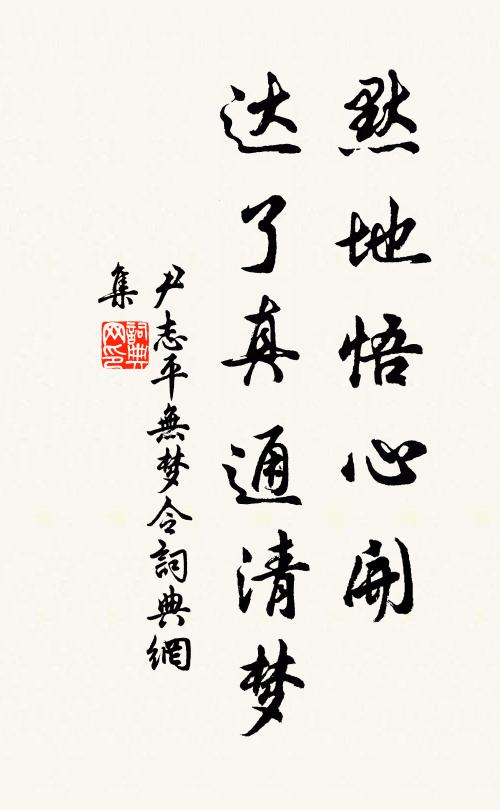 默地悟心開
达了真通清梦
尹志平無梦令詞典網
集
詞典网印